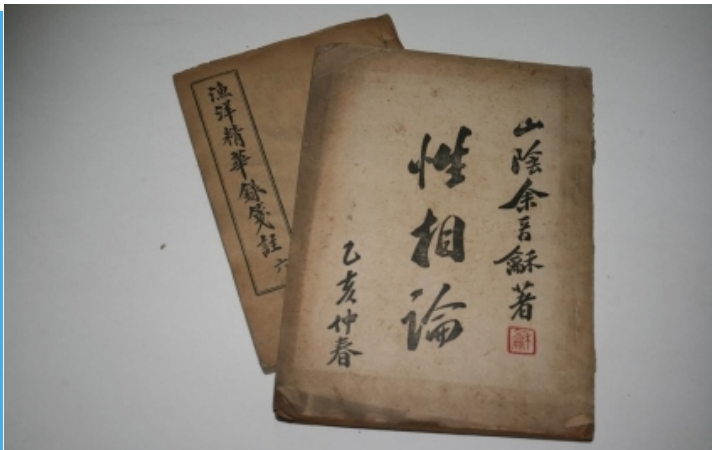 漁洋精華錄箋註 六
山陰余晋龢著
性相論
乙亥仲春